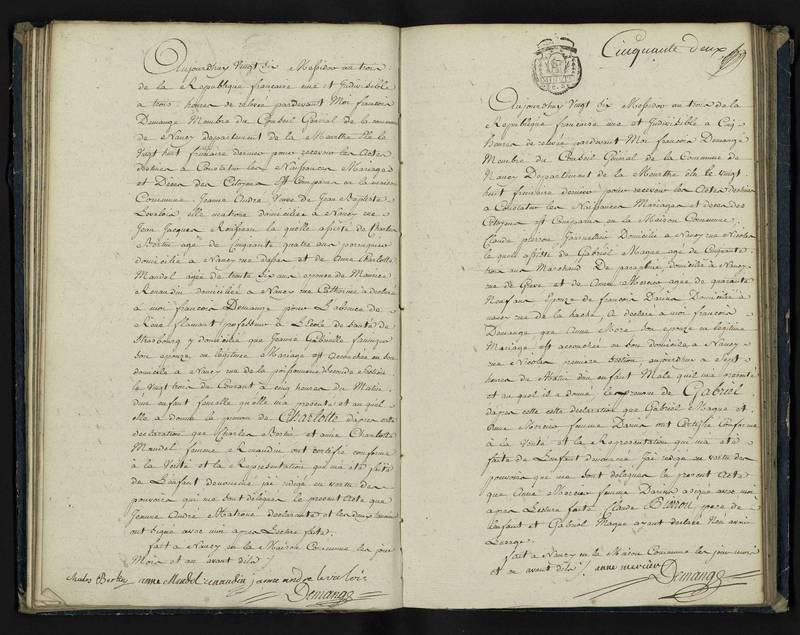 Aujourdhuy Vingt six Messidor an trois
de la République française une et Indivisible
à trois heures de relevée pardevant Moi françois
Demange Membre du Conseil Général de la commune
de Nancy département de la Meurthe élu le
Vingt huit frimaire dernier pour recevoir les Actes
destinés à Constater les Naissances Mariages
et Décès des Citoyens est Comparue en la maison
Commune Jeanne André Veuve de Jean Baptiste
elle matrone domiciliée à Nancy rue
Jean Jacques Rousseau la quelle assistée de Charles
Bertin agé de Cinquante quatre ans perruquier
domicilié à Nancy et de Anne Charlotte
Mandel agée de trente six ans épouse de Maurice
Renaudin domiciliée à Nancy rue Catherine a déclaré
à moi françois Demange pour L'absence de
René flamant professeur à L'Ecole de santé de
Strasbourg y domicilié que Jeanne Gabrielle
Son épouse en légitime Mariage est accouchée en son
domicile à Nancy rue de la poissonnerie Seconde Section
le Vingt trois du Courant à cinq heures du Matin
d'un enfant femelle qu'elle m'a présenté et auquel
elle a donné le prénom de Charlotte d'après cette
déclaration que Charles Bertin et anne Charlotte
Mandel femme Renaudin ont certifié conforme
à la Vérité et la Représentation qui m'a été faite
de L'enfant dénommé j'ai rédigé en vertu des
pouvoirs qui me sont délégués le présent acte que
Jeanne André Matrone déclarante et les deux témoins
ont Signé avec moi après Lecture faite.
fait à Nancy en la Maison Commune les jour
Mois et an avant dits
Charles Bertin anne Mandel renaudin
Demange
Cinquante deux
Aujourdhuy Vingt six Messidor an trois de la
République française une et Indivisible à Cinq
heures de relevée pardevant Moi françois Demange
Membre du Conseil Général de la Commune de
Nancy Département de la Meurthe élu le vingt
huit frimaire dernier pour recevoir les Actes destinés
à Constater les Naissances Mariages et décès des
Citoyens est Comparu en la Maison Commune
Claude pierron Domicilié à Nancy rue Nicolas
le quel assisté de Gabriel Maque agé de Cinquante
trois ans Marchand De domicilié à Nancy
rue de Grève et de Anne Mercier agée de quarante
Neuf ans Epouse de francois Darius Domiciliée à
nancy rue de la hache, a déclaré à moi francois
Demange que Anne son épouse en légitime
Mariage est accouchée en son domicile à Nancy
rue Nicolas première Section aujourdhui à Sept
heures du Matin d'un enfant Male quil ma présenté
et au quel il a donné le prenom de Gabriel
daprès cette déclaration que Gabriel Maque et
Anne Mercier femme Darius ont Certifié Conforme
à la Vérité et la Représentation qui ma été
faite de Lenfant dénommé jai rédigé en vertu des
pouvoirs qui me sont délégués le présent Acte
que Anne Mercier femme Darius a signé avec moi
après Lecture faite Claude Pierron père de
Lenfant et Gabriel Maque ayant déclaré Non avoir
Lusage.
fait à Nancy en la Maison Commune les jour mois
et an avant dits. anne mercier
Demange